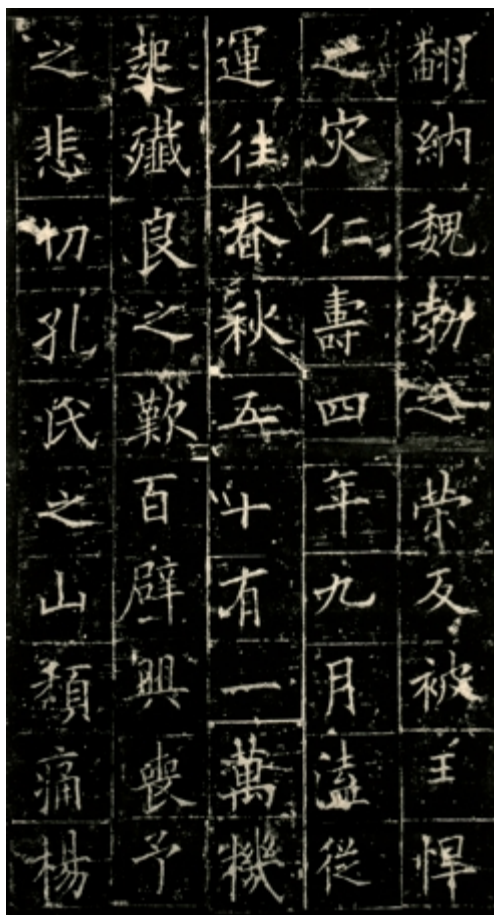 翻納魏勃之榮反被王悍
之灾仁壽四年九月溘從
運往春秋五十有一萬機
起殲良之歎百辟興喪予
之悲切孔氏之山頹痛楊